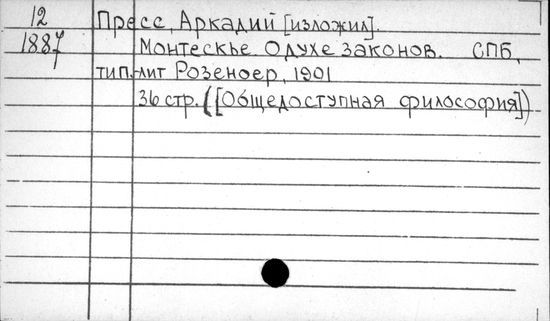 12 Пресс, Аркадий [изложил].
1887 Монтескье. О духе законов. СПб,
тип.-лит Розеноер, 1901
36 стр. ([Общедоступная философия])